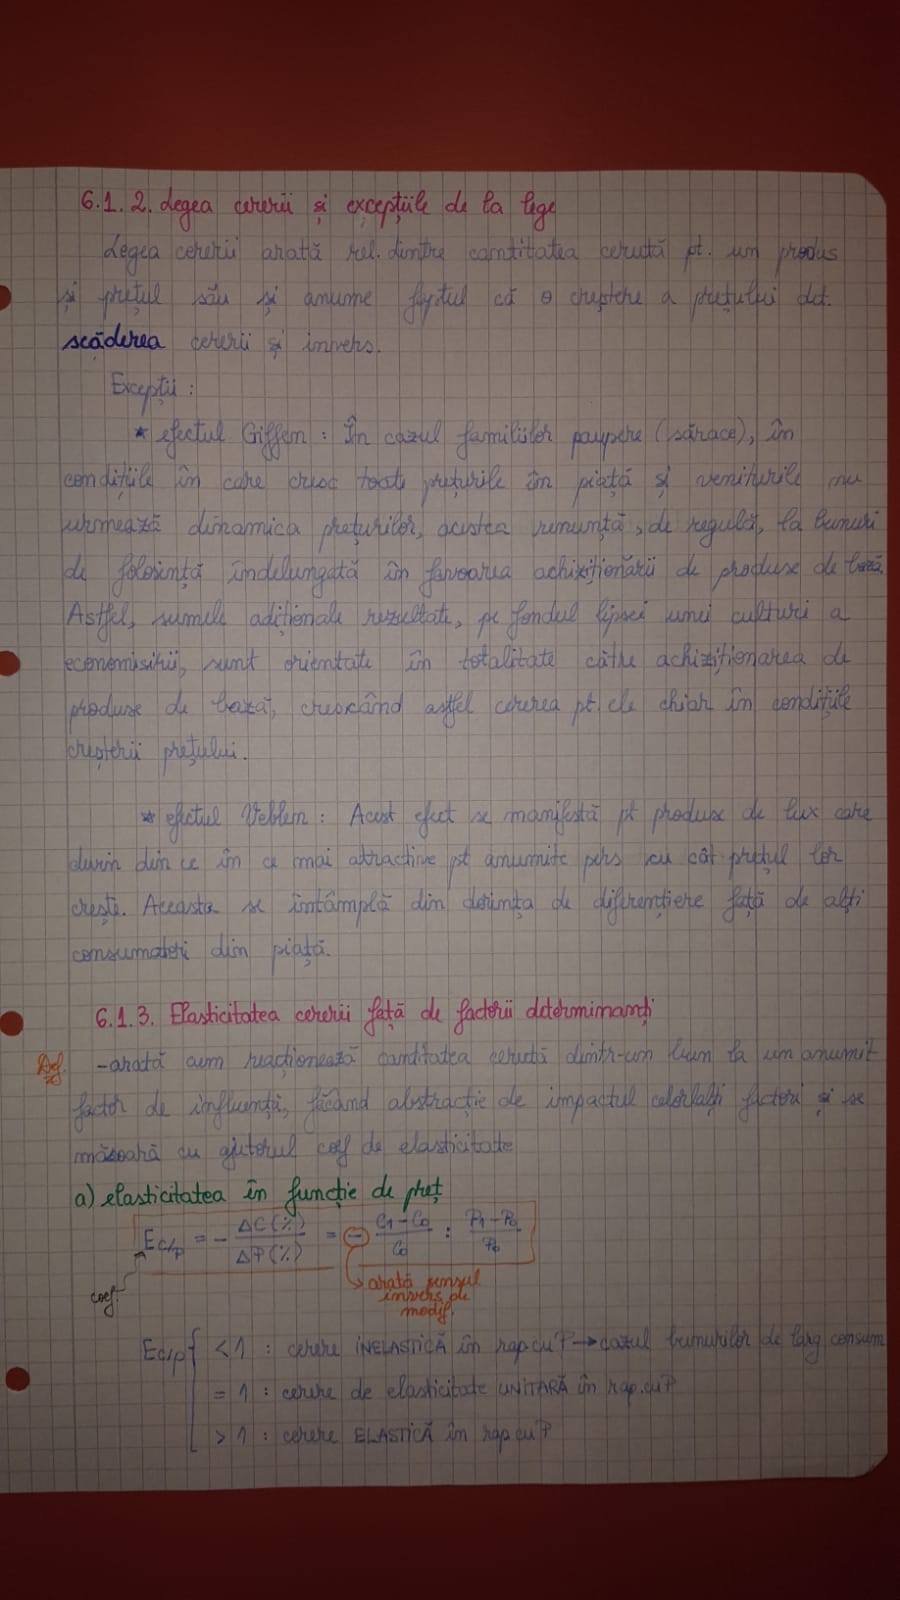 6.1.2. Legea cererii și excepțiile de la lege
Legea cererii arată rel. dintre cantitatea cerută pt. un produs
și prețul său și anume faptul că o creștere a prețului det.
scăderea cererii și invers.
Excepții:
* efectul Giffen: În cazul familiilor paupere (sărace), în
condițiile în care cresc toate prețurile în piață și veniturile nu
urmează dinamica prețurilor, acestea renunță, de regulă, la bunuri
de folosință îndelungată în favoarea achiziționării de produse de bază.
Astfel, sumele adiționale rezultate, pe fondul lipsei unei culturi a
economisirii, sunt orientate în totalitate către achiziționarea de
produse de bază, crescând astfel cererea pt ele chiar în condițiile
creșterii prețului.
* efectul Veblen: Acest efect se manifestă pt produse de lux care
devin din ce în ce mai atractive pt anumite pers cu cât prețul lor
crește. Aceasta se întâmplă din dorința de diferențiere față de alți
consumatori din piață.
6.1.3. Elasticitatea cererii față de factorii determinanți
Def. - arată cum reacționează cantitatea cerută dintr-un bun la un anumit
factor de influență, făcând abstracție de impactul celorlalți factori și se
măsoară cu ajutorul coef de elasticitate
a) elasticitatea în funcție de preț
coef. Ec/p = - ΔC(%) / ΔP(%) = - C1-C0 / C0 : P1-P0 / P0
arată sensul
invers de
modif.
Ec/p { < 1 : cerere INELASTICĂ în rap cu P → cazul bunurilor de larg consum
= 1 : cerere de elasticitate UNITARĂ în rap. cu P
> 1 : cerere ELASTICĂ în rap cu P